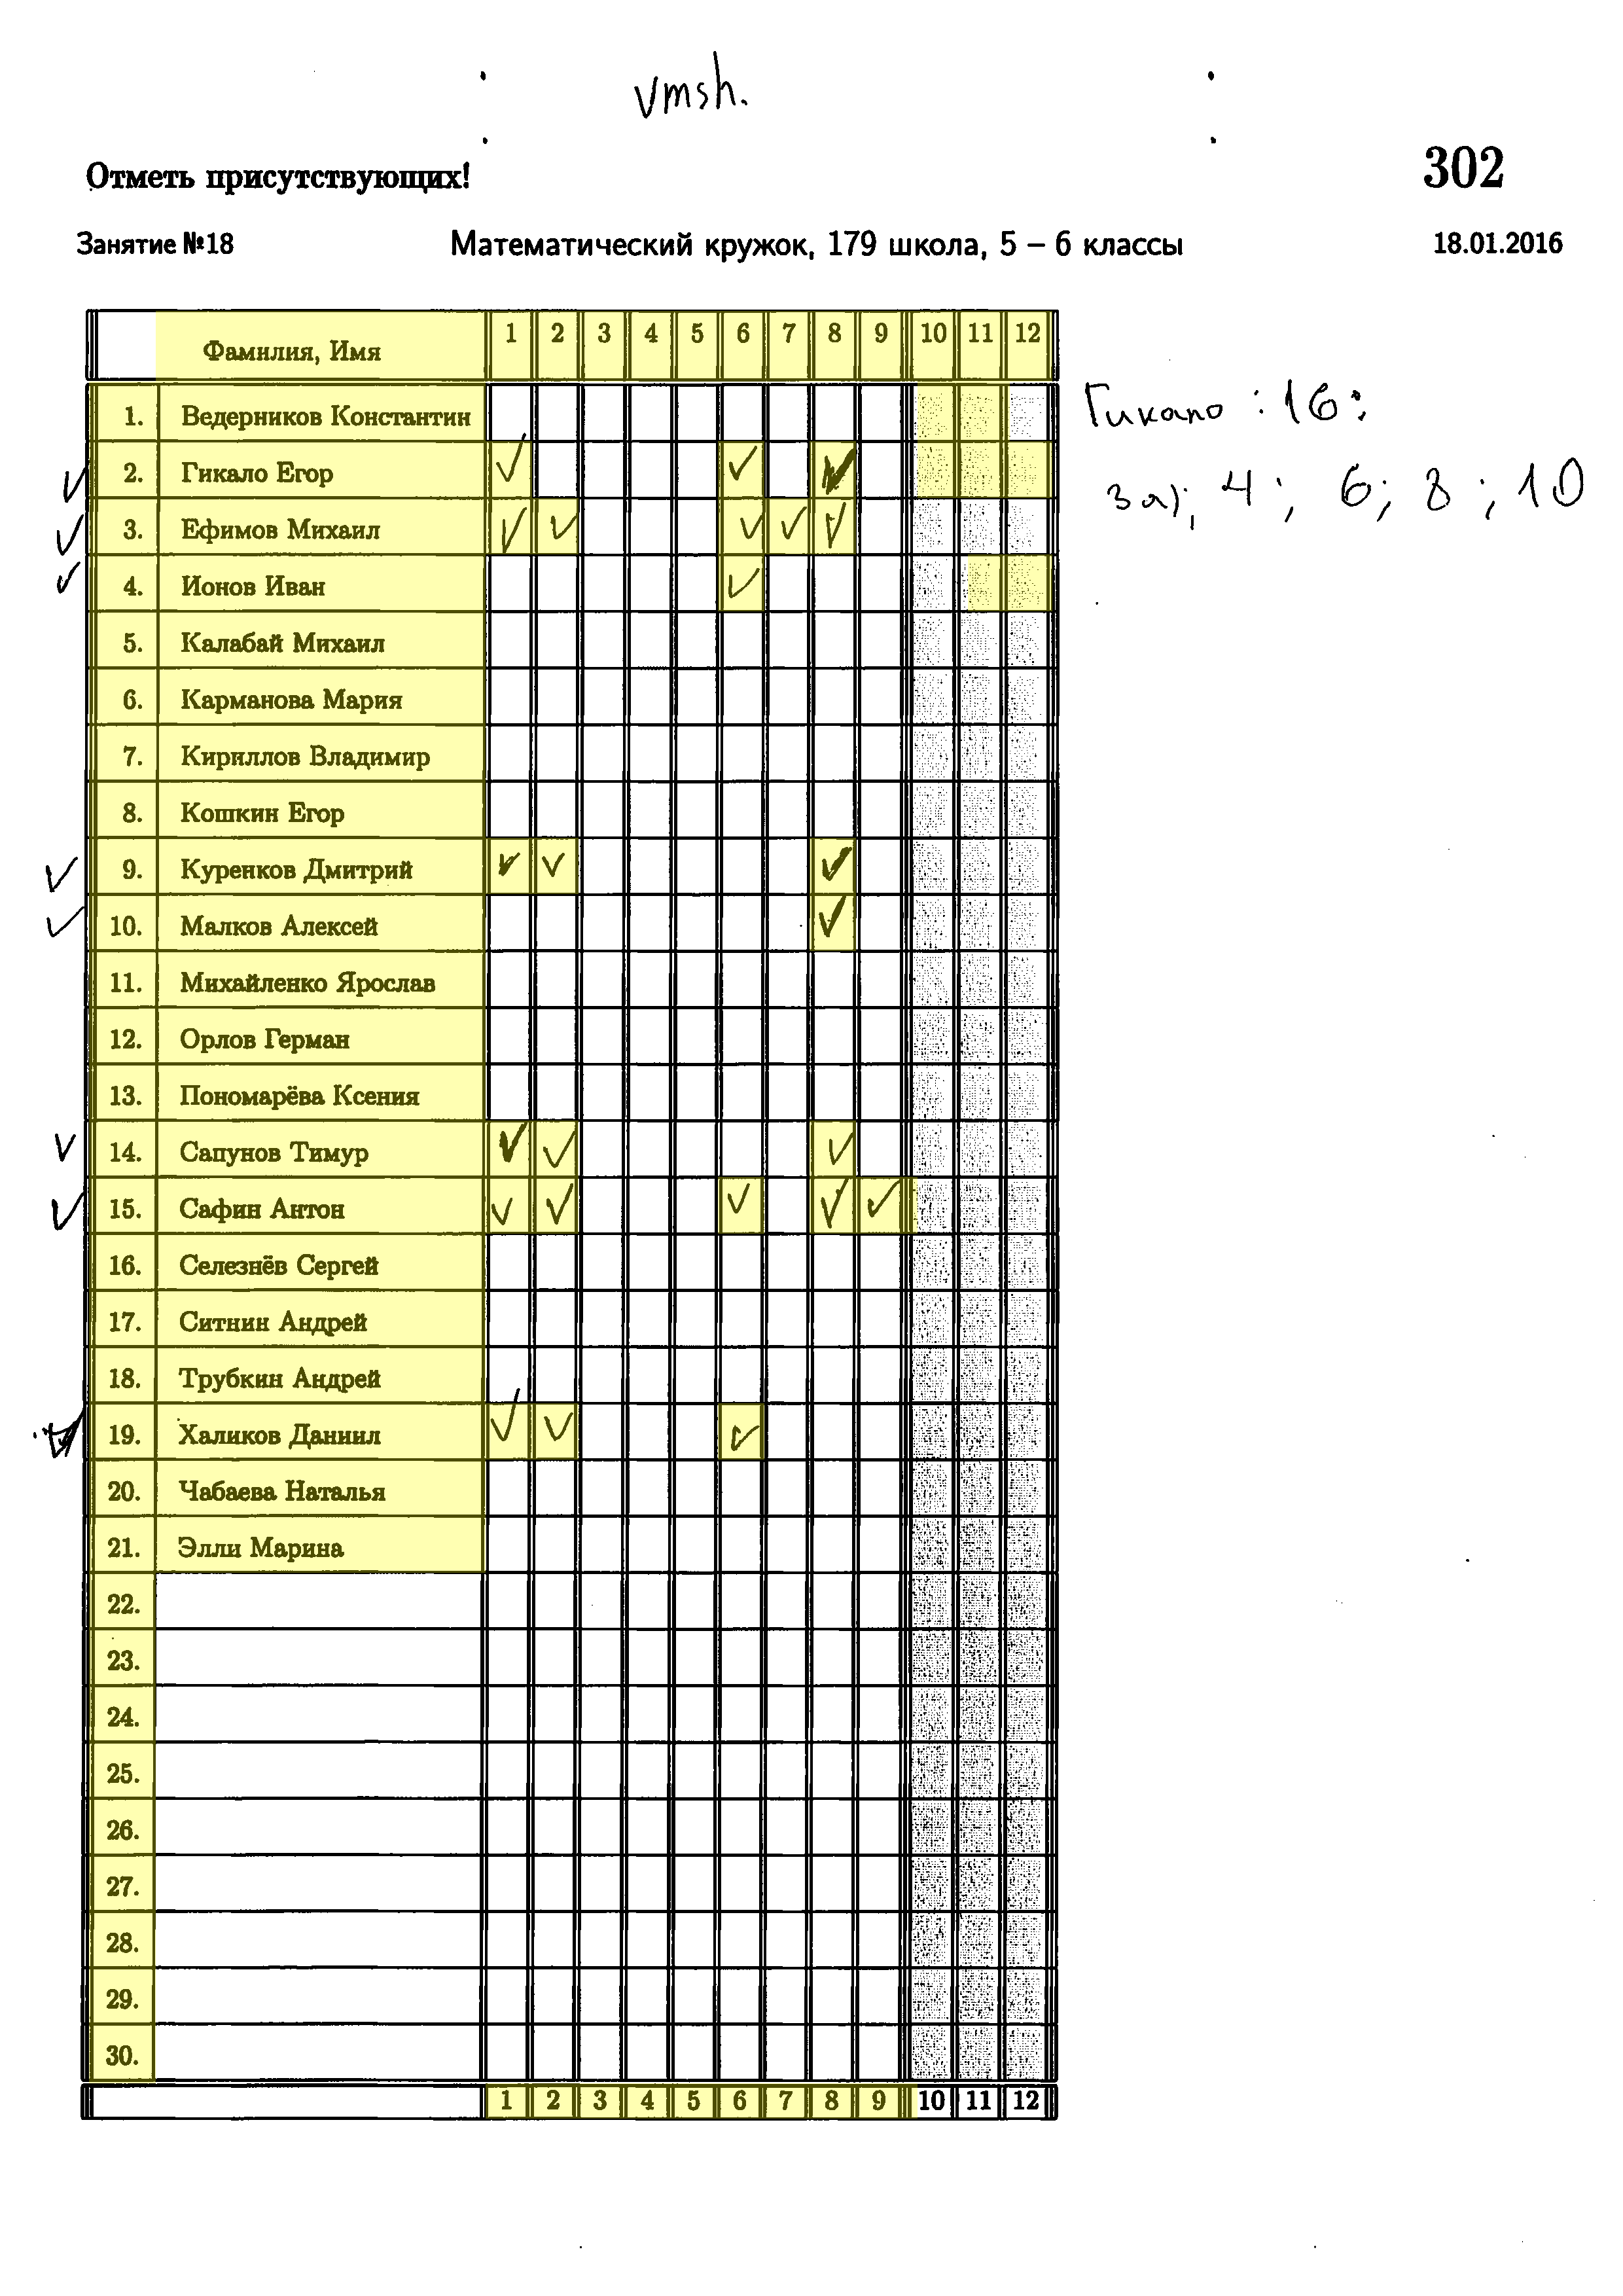 vmsh.
Отметь присутствующих!
302
Занятие №18 Математический кружок, 179 школа, 5 – 6 классы 18.01.2016
Фамилия, Имя 1 2 3 4 5 6 7 8 9 10 11 12
1. Ведерников Константин
Гикало : 16:
2. Гикало Егор ✓ ✓ ✓
3а); 4; 6; 8; 10
3. Ефимов Михаил ✓ ✓ ✓ ✓ ✓
4. Ионов Иван ✓
5. Калабай Михаил
6. Карманова Мария
7. Кириллов Владимир
8. Кошкин Егор
9. Куренков Дмитрий ✓ ✓ ✓
10. Малков Алексей ✓
11. Михайленко Ярослав
12. Орлов Герман
13. Пономарёва Ксения
14. Сапунов Тимур ✓ ✓ ✓
15. Сафин Антон ✓ ✓ ✓ ✓ ✓
16. Селезнёв Сергей
17. Ситнин Андрей
18. Трубкин Андрей
19. Халиков Даниил ✓ ✓ ✓
20. Чабаева Наталья
21. Элли Марина
22.
23.
24.
25.
26.
27.
28.
29.
30.
1 2 3 4 5 6 7 8 9 10 11 12